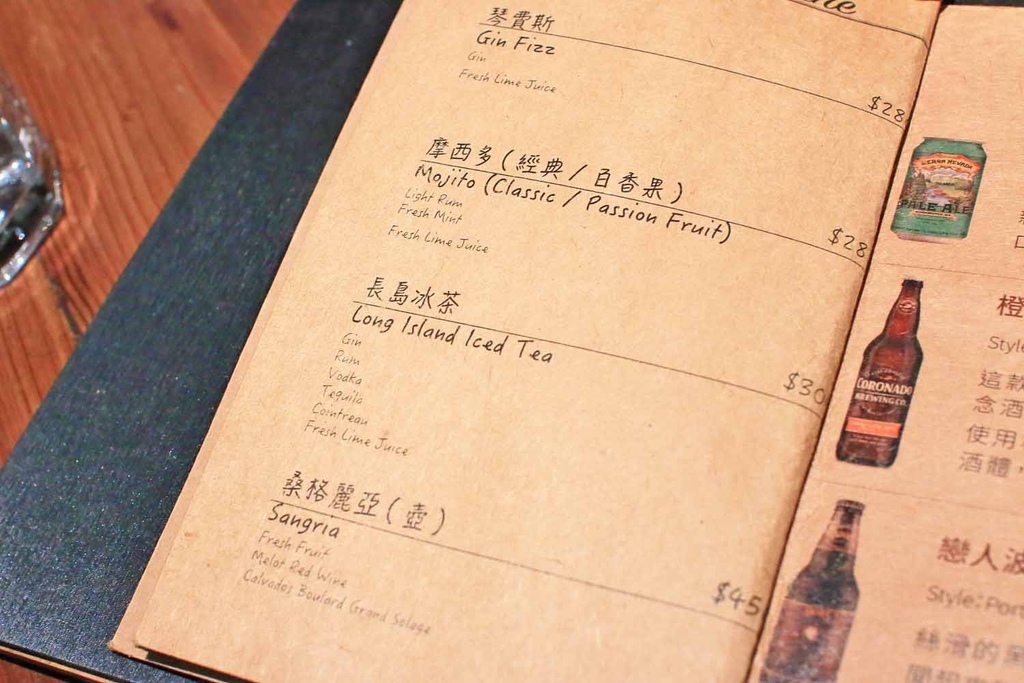 琴費斯
Gin Fizz
Gin
Fresh Lime Juice
$28
摩西多(經典/百香果)
Mojito (Classic / Passion Fruit)
Light Rum
Fresh Mint
Fresh Lime Juice
$28
長島冰茶
Long Island Iced Tea
Gin
Rum
Vodka
Tequila
Cointreau
Fresh Lime Juice
$30
桑格麗亞(壺)
Sangria
Fresh Fruit
Melot Red Wine
Calvados Boulard Grand Solage
$45
SIERRA NEVADA
PALE ALE
橙
Style
這款
念酒
使用
酒體，
CORONADO
BREWING CO.
戀人波
Style: Port
絲滑的黑